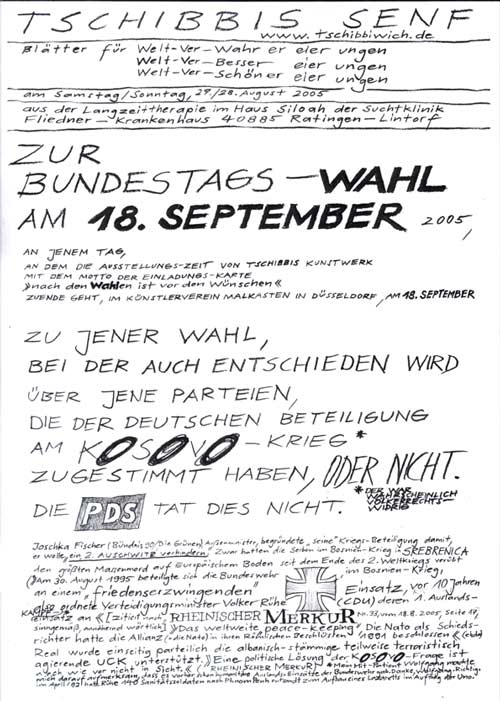 TSCHIBBIS SENF
www.tschibbiwich.de
Blätter für Welt-Ver-Wahr er eier ungen
Welt-Ver-Besser eier ungen
Welt-Ver-Schöner eier ungen
am Samstag/Sonntag, 27./28. August 2005
aus der Langzeittherapie im Haus Siloah der Suchtklinik
Fliedner-Krankenhaus 40885 Ratingen-Lintorf
ZUR
BUNDESTAGS-WAHL
AM 18. SEPTEMBER 2005,
AN JENEM TAG,
AN DEM DIE AUSSTELLUNGS-ZEIT VON TSCHIBBIS KUNSTWERK
MIT DEM MOTTO DER EINLADUNGS-KARTE
»nach den Wahlen ist vor den Wünschen«
ZUENDE GEHT, IM KÜNSTLERVEREIN MALKASTEN IN DÜSSELDORF, AM 18. SEPTEMBER
ZU JENER WAHL,
BEI DER AUCH ENTSCHIEDEN WIRD
ÜBER JENE PARTEIEN,
DIE DER DEUTSCHEN BETEILIGUNG
AM KOSOVO-KRIEG*
ZUGESTIMMT HABEN, ODER NICHT.
* DER WAR
WAHRSCHEINLICH
VÖLKERRECHTS-
WIDRIG
DIE PDS TAT DIES NICHT.
Joschka Fischer (Bündnis 90/Die Grünen) Außenminister, begründete "seine" Kriegs-Beteiligung damit,
er wolle "ein 2. AUSCHWITZ verhindern". Zwar hatten die Serben im Bosnien-Krieg in SREBRENICA
den größten Massenmord auf Europäischem Boden seit dem Ende des 2. Weltkriegs verübt
Am 30. August 1995 beteiligte sich die Bundeswehr im Bosnien-Krieg,
an einem "Friedenserzwingenden" Einsatz, vor 10 Jahren
also ordnete Verteidigungsminister Volker Rühe (CDU) deren 1. Auslands-
Einsatz an « [zitiert nach RHEINISCHER MERKUR Nr. 33, vom 18.8.2005, Seite 17,
"Das weltweite peace-keeping" Die Nato als Schieds-
richter hatte die Allianz (=die Nato) in ihren Römischen Beschlüssen 1991 beschlossen «
Real wurde einseitig parteilich die albanisch-stämmige teilweise terroristisch
agierende UCK unterstützt. »Eine politische Lösung der KOSOVO-Frage ist
nach wie vor nicht in Sicht. « RHEINISCHER MERKUR * Mein Mit-Patient Wolfgang machte
mich darauf aufmerksam, dass es vorher schon humanitäre Auslands-Einsätze der Bundeswehr gab. Danke, Wolfgang. Richtig: